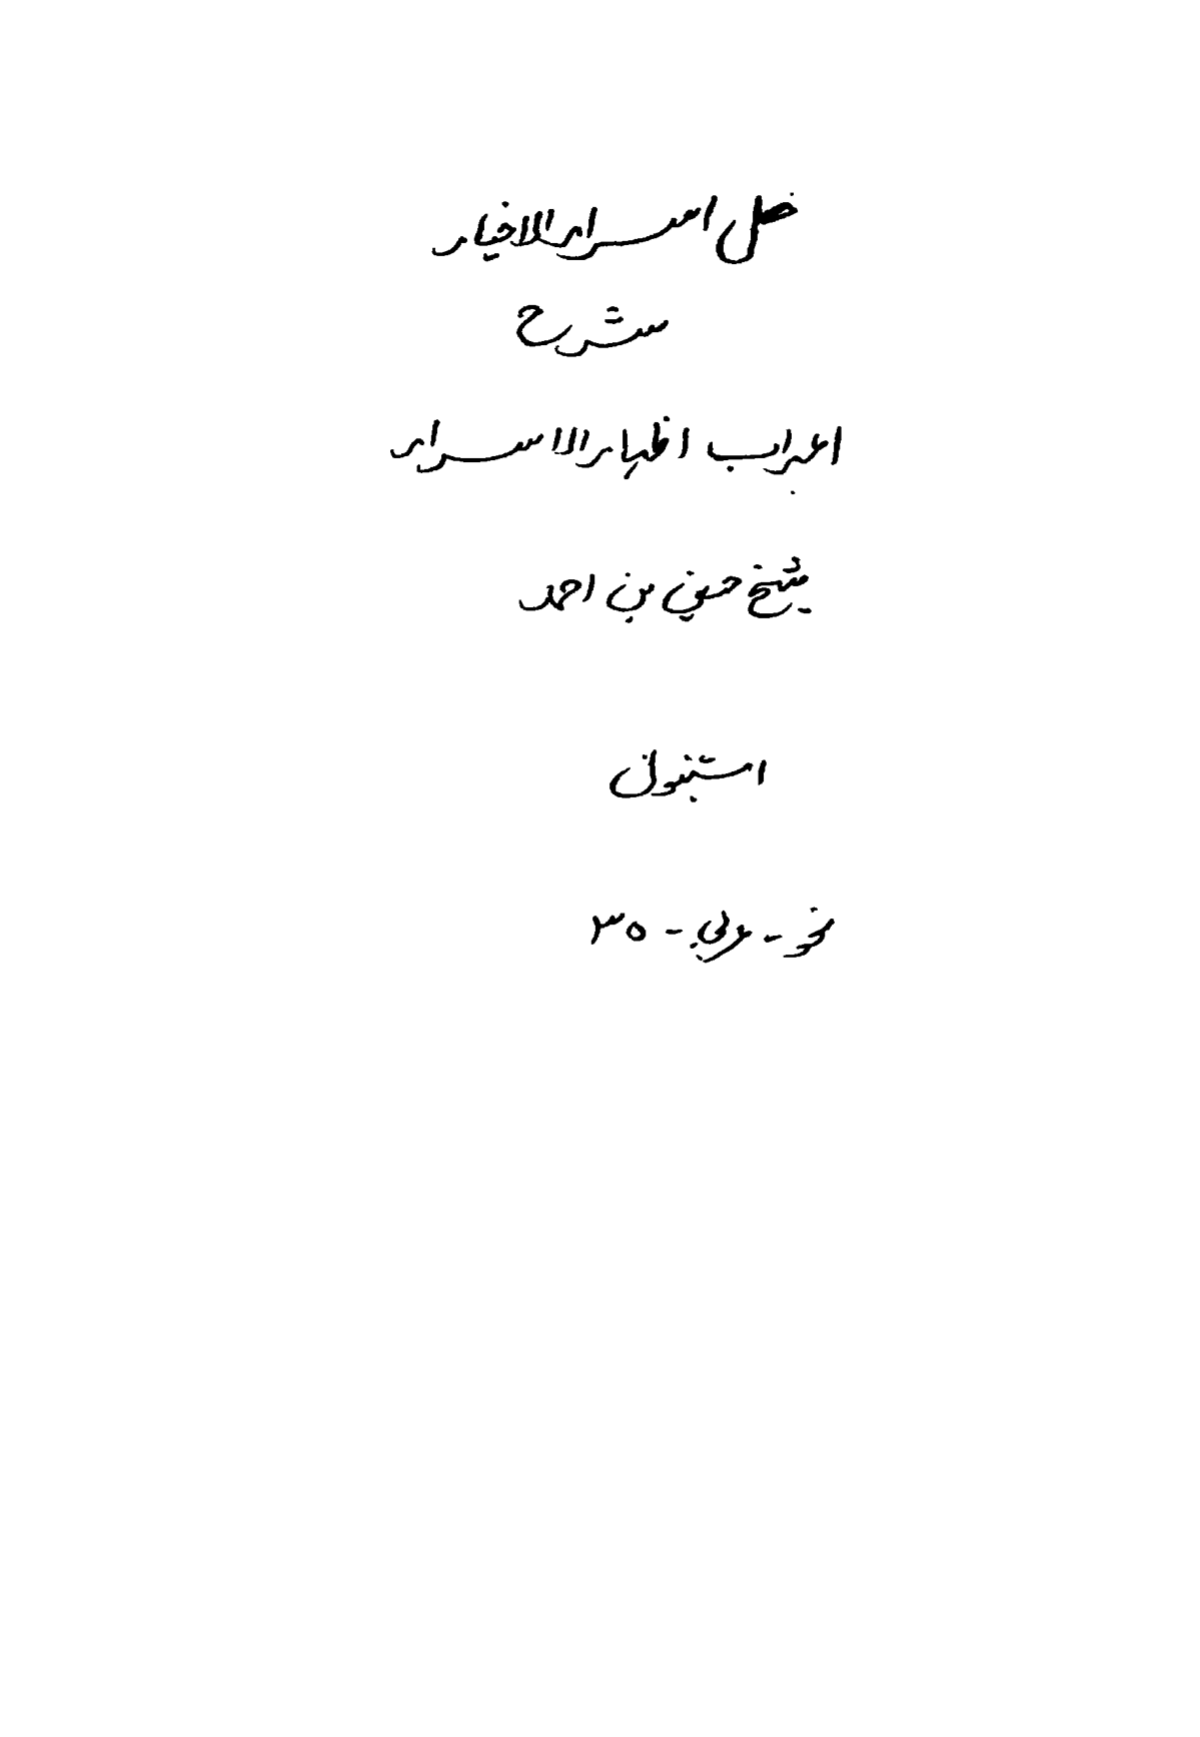 حل اسرار الاخيار
شرح
اعراب اظهار الاسرار
شيخ حسين بن احمد
استنبول
نحو - عربي - ٣٥